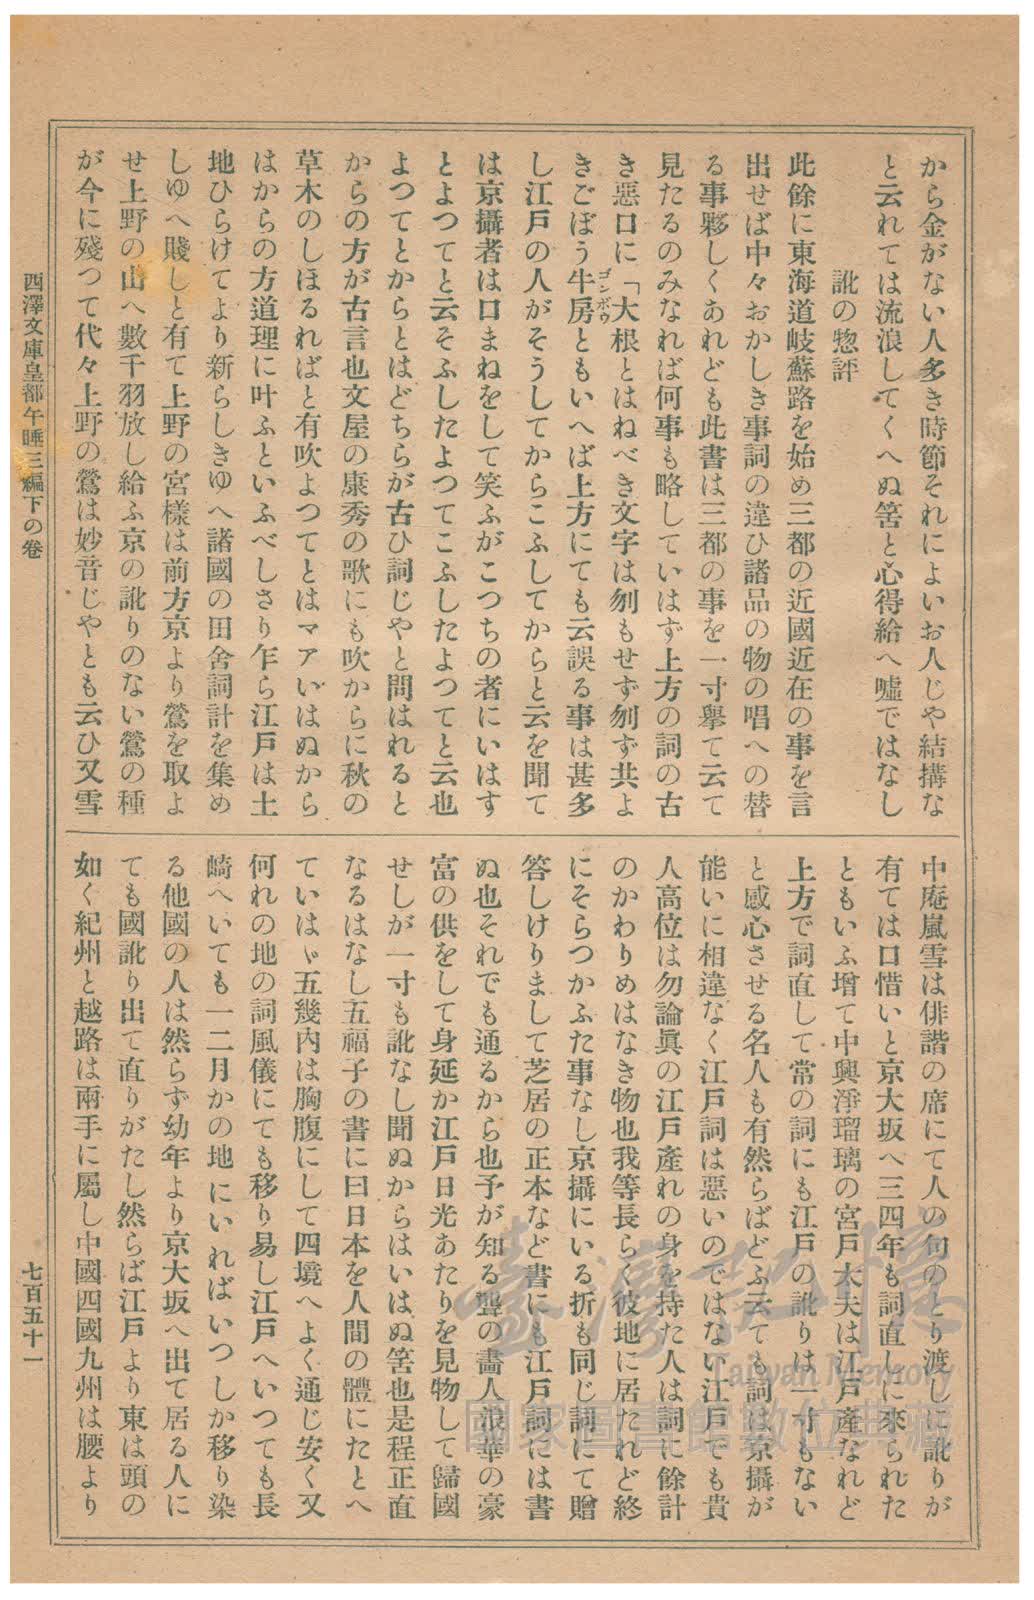 から金がない人多き時節それによいお人じや結搆な
と云れては流浪してくへぬ筈と心得給へ噓ではなし
訛の惣評
此餘に東海道岐蘇路を始め三都の近國近在の事を言
出せば中々おかしき事詞の違ひ諸品の物の唱への替
る事夥しくあれども此書は三都の事を一寸擧て云て
見たるのみなれば何事も略していはず上方の詞の古
き惡口に「大根とはねべき文字は刎もせず刎ず共よ
きごぼう牛房ゴンボウともいへば上方にても云誤る事は甚多
し江戸の人がそうしてからこふしてからと云を聞て
は京攝者は口まねをして笑ふがこつちの者にいはす
とよつてと云そふしたよつてこふしたよつてと云也
よつてとからとはどちらが古ひ詞じやと問はれると
からの方が古言也文屋の康秀の歌にも吹からに秋の
草木のしほるればと有吹よつてとはマアいはぬから
はからの方道理に叶ふといふべしさり乍ら江戸は土
地ひらけてより新らしきゆへ諸國の田舍詞計を集め
しゆへ賤しと有て上野の宮樣は前方京より鶯を取よ
せ上野の山へ數千羽放し給ふ京の訛りのない鶯の種
が今に殘つて代々上野の鶯は妙音じやとも云ひ又雪
中庵嵐雪は俳諧の席にて人の句のとり渡しに訛りが
有ては口惜いと京大坂へ三四年も詞直しに來られた
ともいふ增て中興淨瑠璃の宮戸太夫は江戸產なれど
上方で詞直して常の詞にも江戸の訛りは一寸もない
と感心させる名人も有然らばどふ云ても詞は京攝が
能いに相違なく江戸詞は惡いのではない江戸でも貴
人高位は勿論眞の江戸產れの身を持た人は詞に餘計
のかわりめはなき物也我等長らく彼地に居たれど終
にそらつかふた事なし京攝にいる折も同じ詞にて贈
答しけりまして芝居の正本など書にも江戸詞には書
ぬ也それでも通るから也予が知る聾の畵人浪華の豪
富の供をして身延か江戸日光あたりを見物して歸國
せしが一寸も訛なし聞ぬからはいはぬ筈也是程正直
なるはなし五福子の書に曰日本を人間の體にたとへ
ていはゞ五幾內は胸腹にして四境へよく通じ安く又
何れの地の詞風儀にても移り易し江戸へいつても長
崎へいても一二月かの地にいればいつしか移り染
る他國の人は然らず幼年より京大坂へ出て居る人に
ても國訛り出て直りがたし然らば江戸より東は頭の
如く紀州と越路は兩手に屬し中國四國九州は腰より
西澤文庫皇都午睡三編下の卷
七百五十一
臺灣記憶
Taiwan Memory
國家圖書館數位典藏